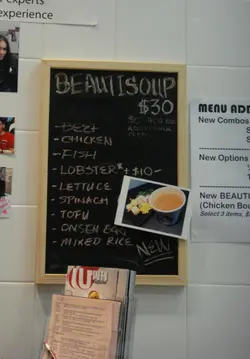 experts
experience
BEAUTISOUP
$30
- BEEF
- CHICKEN
- FISH
- LOBSTER* +$10-
- LETTUCE
- SPINACH
- TOFU
- ONSEN EGG
- MIXED RICE
NEW
MENU ADD
New Combos
New Options
New BEAUTI
(Chicken Bou
Select 3 items, $